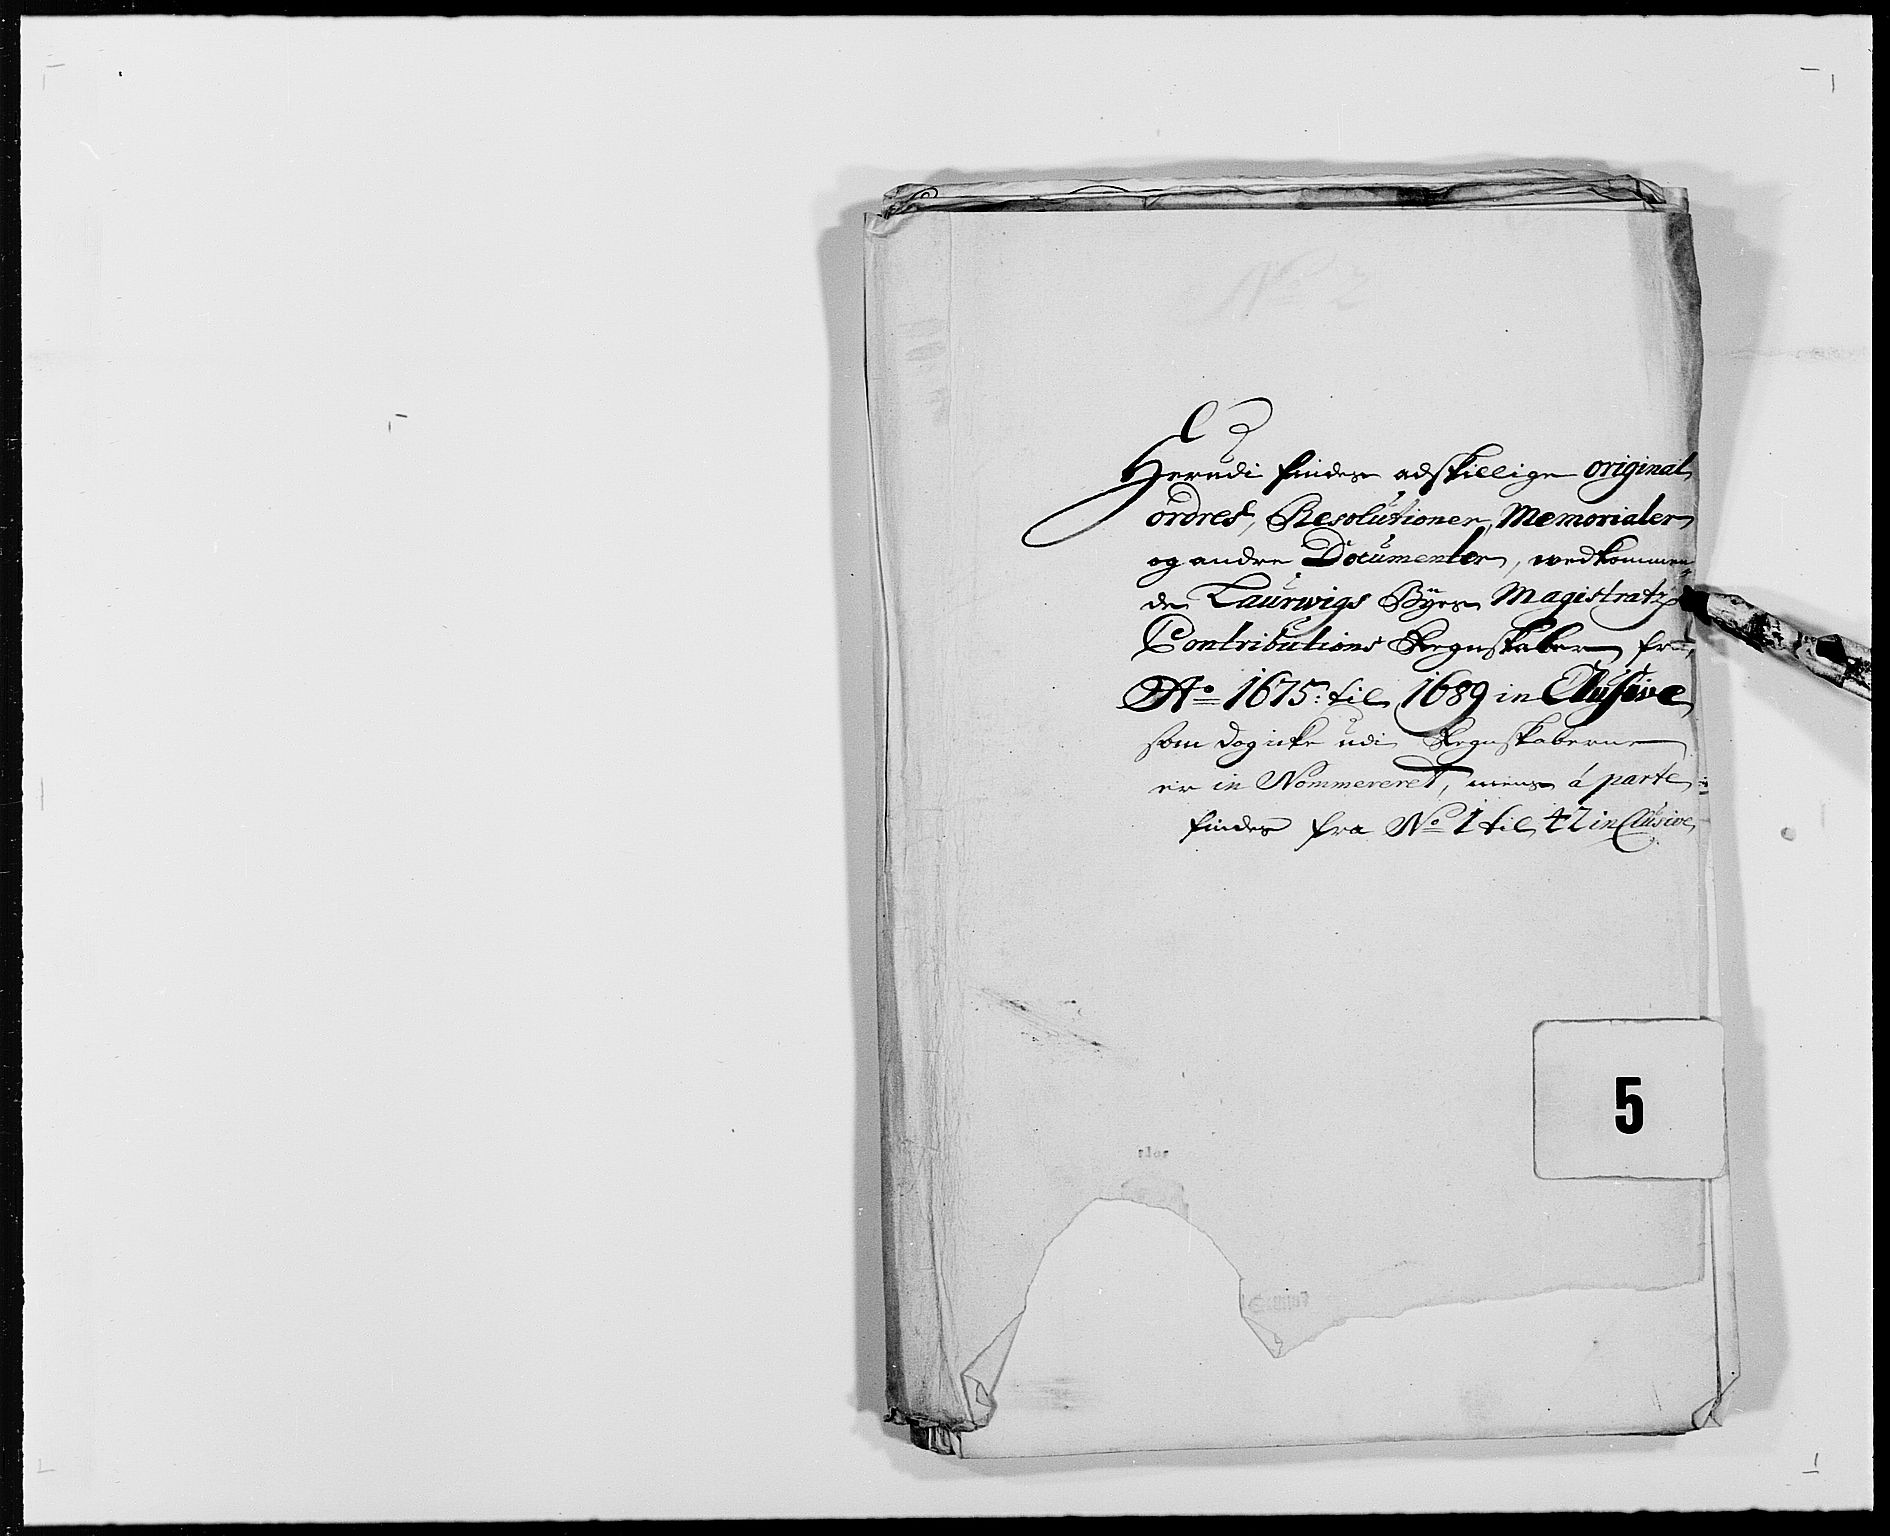 No 2
Herudi findes adskillige original
ordres, Resolutioner, Memorialer
og andre Documenter, wedkommen-
de Laurwigs Byes Magistratz
Contributions Regnskaber fra
Ao 1675: til 1689 inClusive
som dog icke udi Regnskaberne
er in Nommereret, mens á parte
findes fra No 1 til 42 inClusive
5